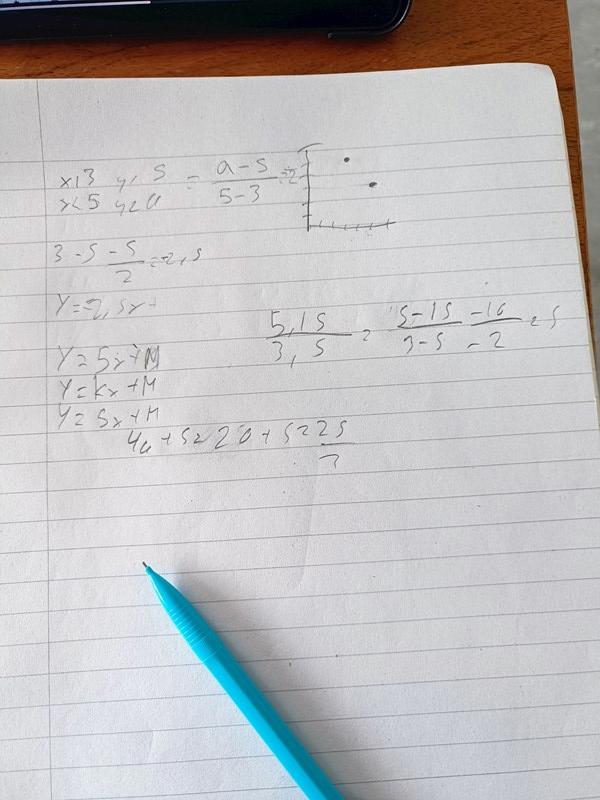 x13 y< 5 = a-5 / 5-3 = 2
x<5 y2a
3-5 -5/2 = -2,5
Y=-2,5x+
5,15 / 3,5 = 5-15 / 3-5 -10 / -2 = 5
Y=5x+M
Y=kx+M
Y=5x+M
4a+5=20+5=25